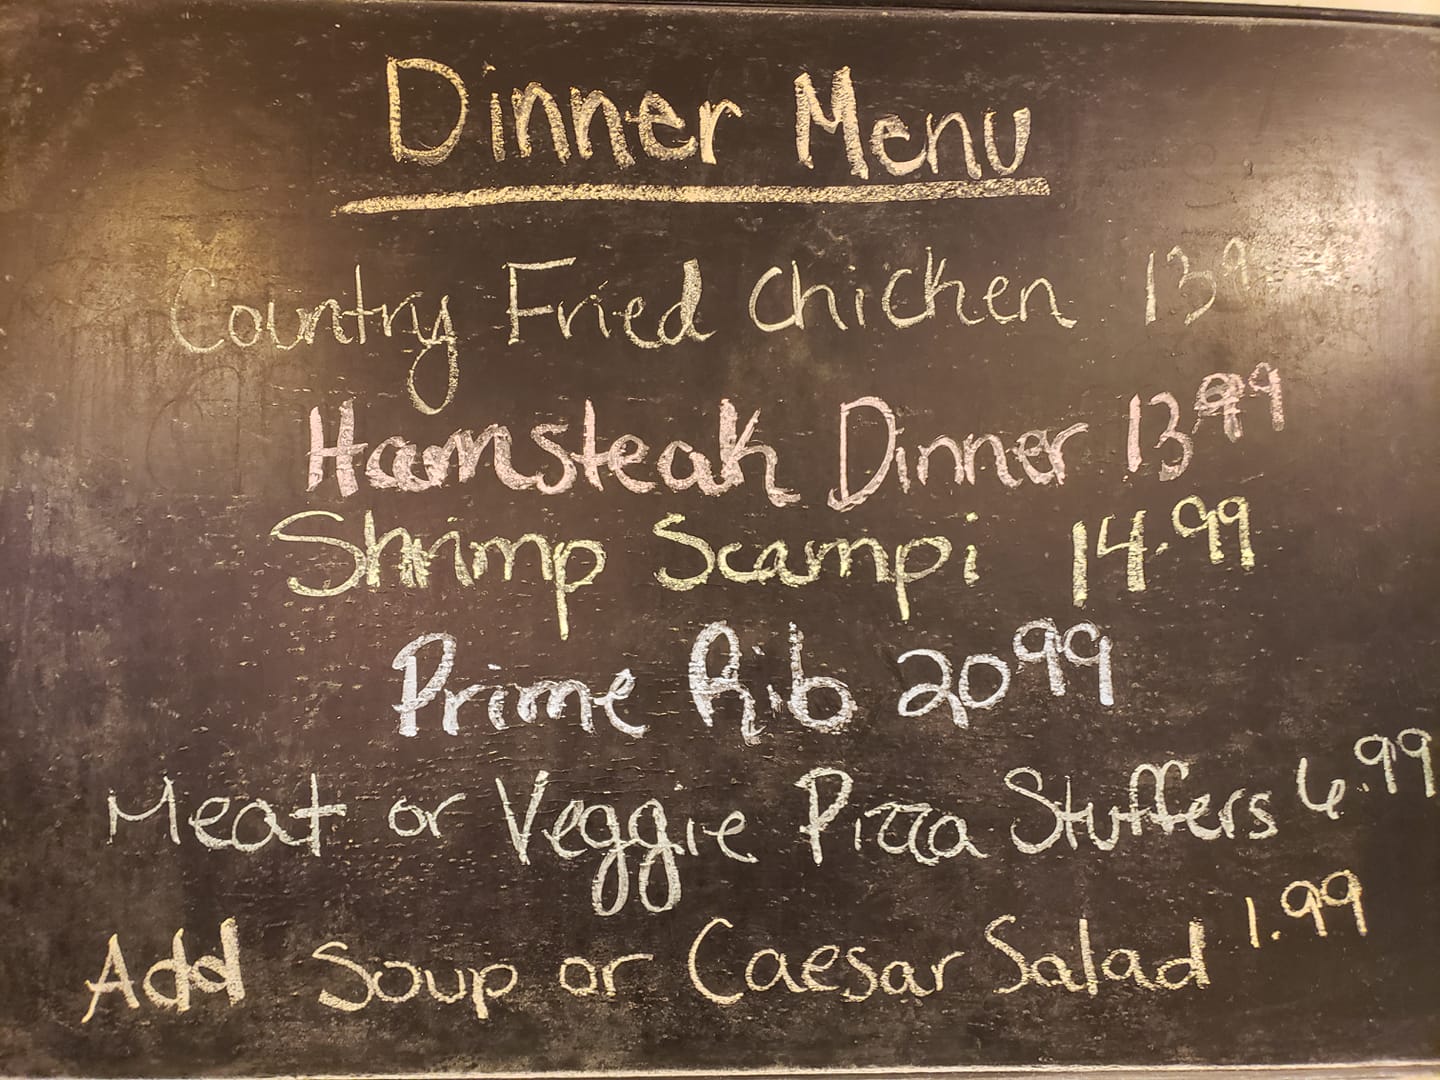 Dinner Menu
Country Fried Chicken 139
Hamsteak Dinner 1399
Shrimp Scampi 14.99
Prime Rib 2099
Meat or Veggie Pizza Stuffers 6.99
Add Soup or Caesar Salad 1.99